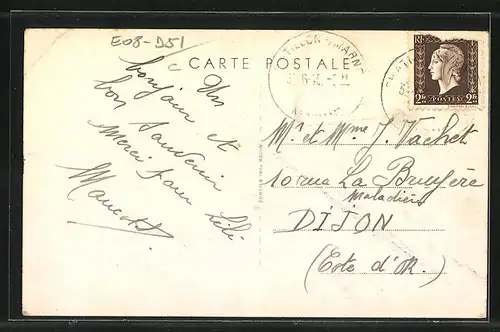 E08-D51
CARTE POSTALE
Un
bonjour et
bon souvenir
Merci pour Lili
TILLON-MARNE
RF
2F POSTES 2F
Mr et Mme J. Vachet
10 rue La Bruyère
Maladière
DIJON
(Côte d'Or.)